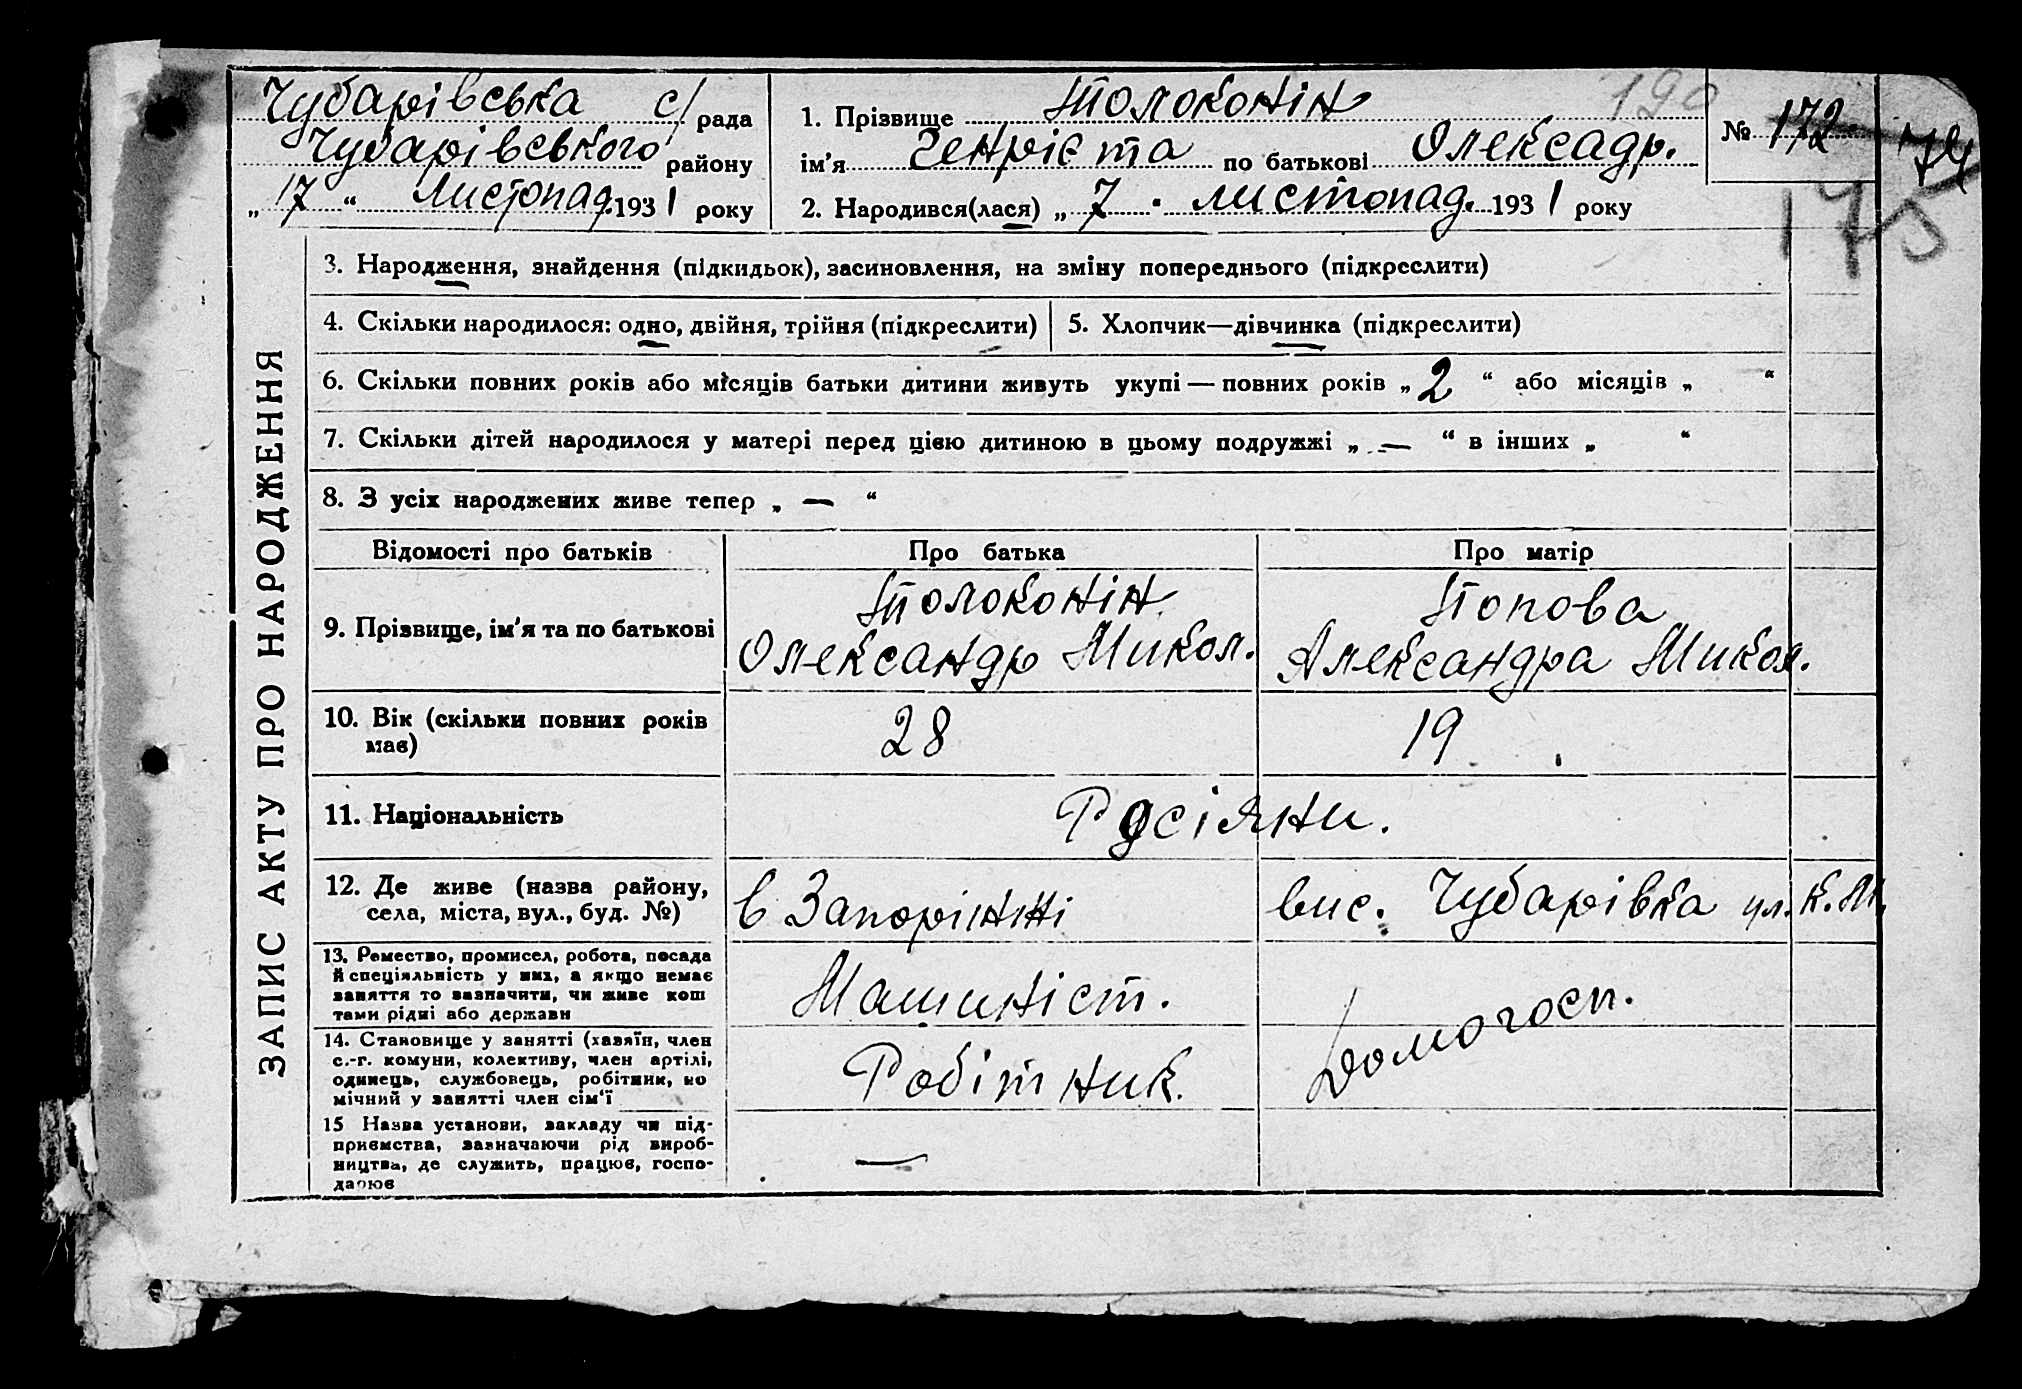 Чубарівська с/рада
Чубарівського району
„ 17 “ Листопад. 1931 року
1. Прізвище Толоконін
ім’я Генріета по батькові Олексадр.
2. Народився(лася) „ 7 “ листопад. 1931 року
190
№ 172
74
175
ЗАПИС АКТУ ПРО НАРОДЖЕННЯ
3. Народження, знайдення (підкидьок), засиновлення, на зміну попереднього (підкреслити)
4. Скільки народилося: одно, двійня, трійня (підкреслити)
5. Хлопчик—дівчинка (підкреслити)
6. Скільки повних років або місяців батьки дитини живуть укупі — повних років „ 2 “ або місяців „ “
7. Скільки дітей народилося у матері перед цією дитиною в цьому подружжі „ — “ в інших „ “
8. З усіх народжених живе тепер „ — “
Відомості про батьків
Про батька
Про матір
9. Прізвище, ім’я та по батькові
Толоконін
Олександр Микол.
Попова
Александра Микол.
10. Вік (скільки повних років
має)
28
19
11. Національність
Росіяни.
12. Де живе (назва району,
села, міста, вул., буд. №)
в Запоріжжі
вис. Чубарівка ул. К. М.
13. Ремество, промисел, робота, посада
й спеціяльність у них, а якщо немає
заняття то зазначити, чи живе кош
тами рідні або держави
Машиніст.
Домогосп.
14. Становище у занятті (хазяїн, член
с.-г. комуни, колективу, член артілі,
одинець, службовець, робітник, по
мічний у занятті член сім’ї
Робітник.
15 Назва установи, закладу чи під-
приємства, зазначаючи рід вироб-
ництва, де служить, працює, госпо-
дарює
—